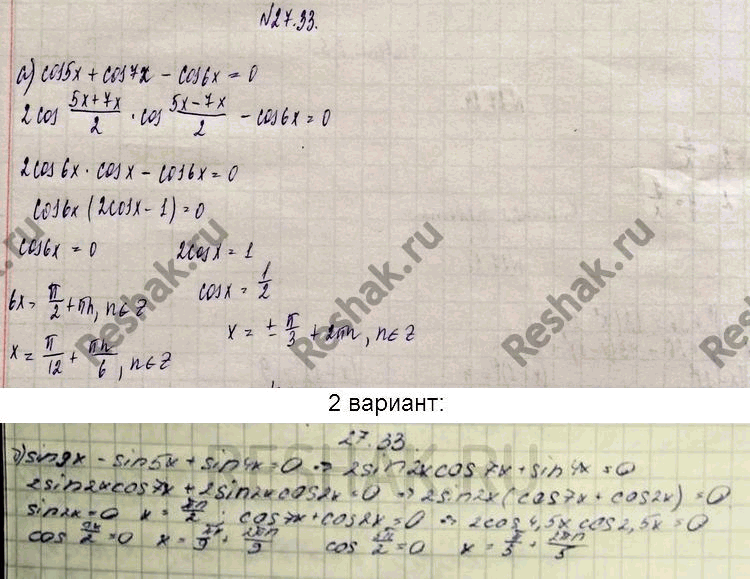 №27.33.
а) cos5x + cos7x - cos6x = 0
2cos (5x+7x)/2 · cos (5x-7x)/2 - cos6x = 0
2cos6x · cosx - cos6x = 0
cos6x (2cosx - 1) = 0
cos6x = 0 2cosx = 1
cosx = 1/2
6x = π/2 + πn, n∈Z
x = ± π/3 + 2πn, n∈Z
x = π/12 + πn/6, n∈Z
Reshak.ru
Reshak.ru
Reshak.ru
2 вариант:
RESHAK.RU
27.33
б) sin9x - sin5x + sin4x = 0 => 2sin2xcos7x + sin4x = 0
2sin2xcos7x + 2sin2xcos2x = 0 => 2sin2x(cos7x + cos2x) = 0
sin2x = 0 x = πn/2; cos7x + cos2x = 0 => 2cos4,5x cos2,5x = 0
cos 9x/2 = 0 x = π/9 + 2πn/9 cos 5x/2 = 0 x = π/5 + 2πn/5